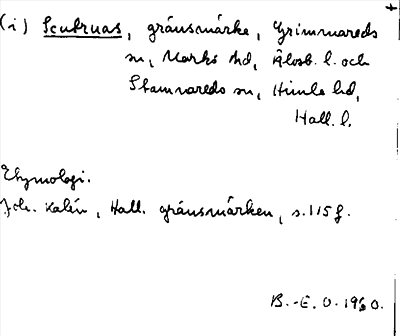 (i) Scutruas, gränsmärke, Grimmareds
sn, Marks hd, Älvsb. l. och
Stamnareds sn, Himle hd,
Hall. l.
Etymologi.
Joh. Kalén, Hall. gränsmärken, s. 115 f.
B.-E. O. 1960.